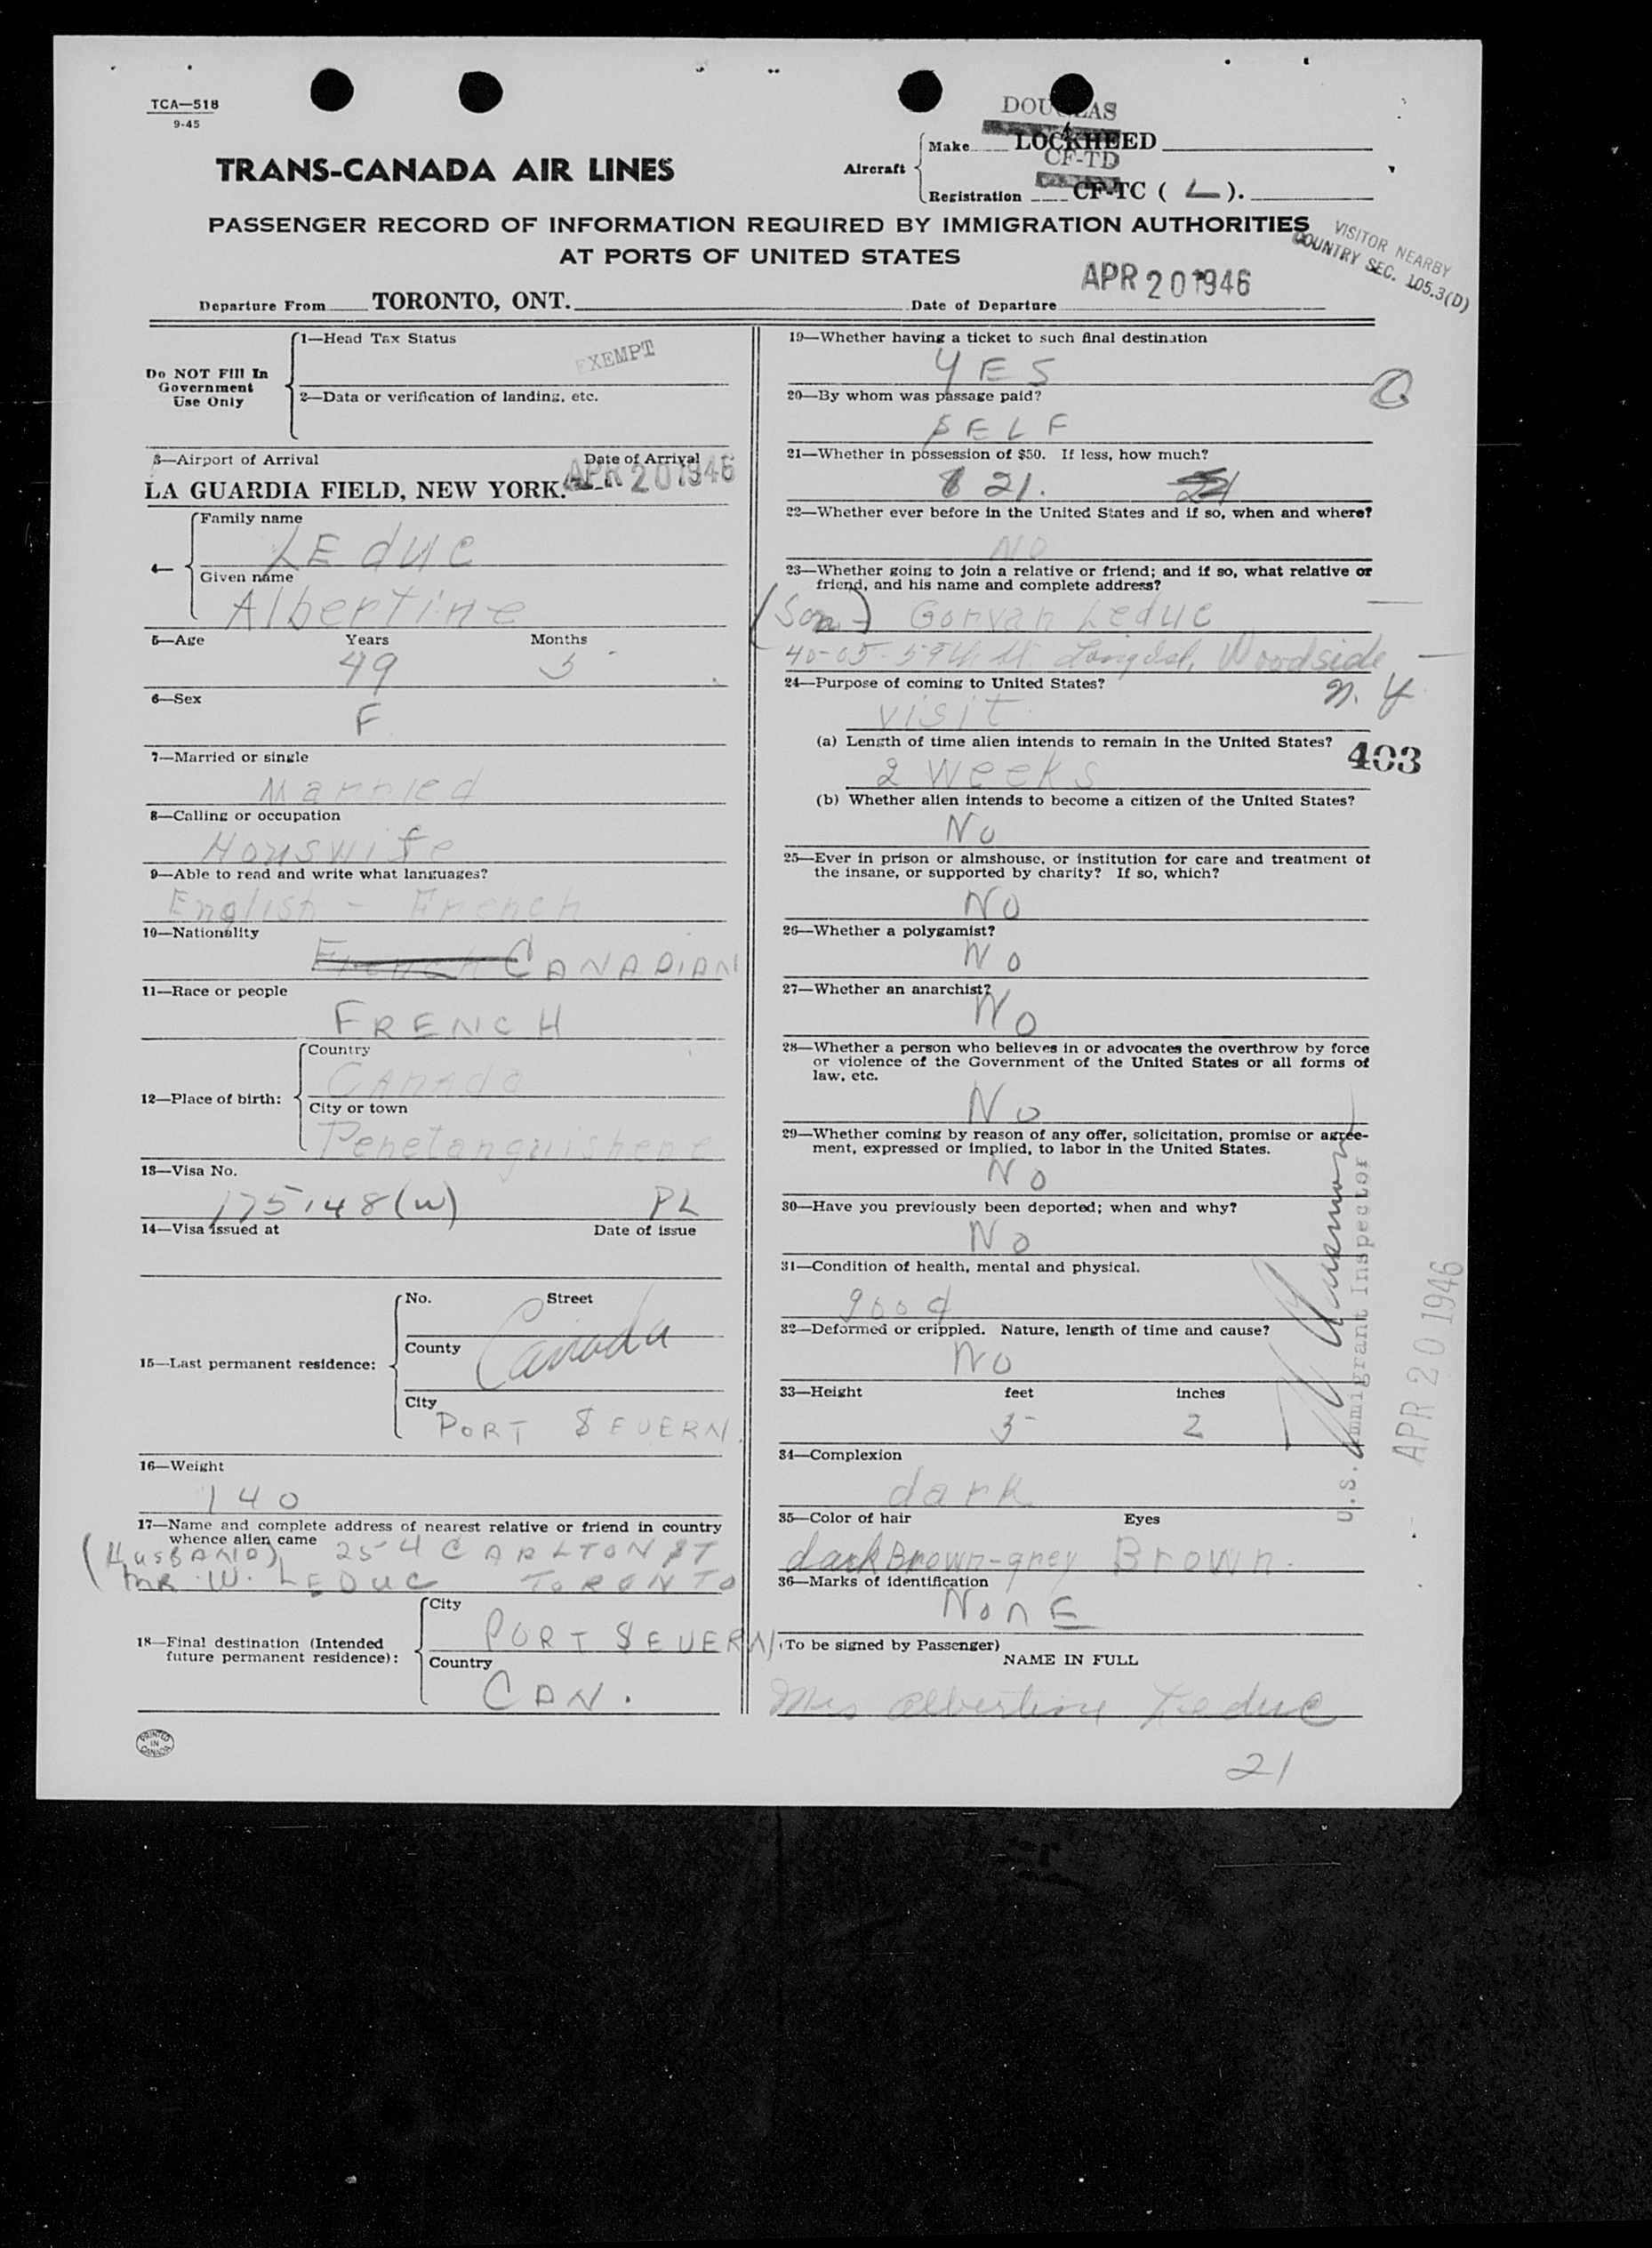 TCA—518
9-45
DOUGLAS
Aircraft
Make LOCKHEED
CF-TD
Registration CF-TC ( L ).
TRANS-CANADA AIR LINES
PASSENGER RECORD OF INFORMATION REQUIRED BY IMMIGRATION AUTHORITIES
AT PORTS OF UNITED STATES
VISITOR NEARBY
COUNTRY SEC. 105.3(D)
Departure From TORONTO, ONT. Date of Departure APR 20 1946
Do NOT Fill In
Government
Use Only
1—Head Tax Status
EXEMPT
2—Data or verification of landing, etc.
3—Airport of Arrival Date of Arrival
LA GUARDIA FIELD, NEW YORK. APR 20 1946
4—
Family name
LEduc
Given name
Albertine
5—Age Years Months
49 5
6—Sex
F
7—Married or single
Married
8—Calling or occupation
Houswife
9—Able to read and write what languages?
English - French
10—Nationality
French CANADIAN
11—Race or people
FRENCH
12—Place of birth:
Country
CANAda
City or town
Penetanguishene
13—Visa No.
175148(W) PL
14—Visa issued at Date of issue
15—Last permanent residence:
No. Street
County
Canada
City
PORT SEVERN.
16—Weight
140
17—Name and complete address of nearest relative or friend in country
whence alien came
(HUSBAND) 254 CARLTON ST
MR. W. LEDUC TORONTO
18—Final destination (Intended
future permanent residence):
City
PORT SEVERN
Country
CAN.
PRINTED
IN
CANADA
19—Whether having a ticket to such final destination
YES
20—By whom was passage paid?
SELF
21—Whether in possession of $50. If less, how much?
$ 21.
22—Whether ever before in the United States and if so, when and where?
NO
23—Whether going to join a relative or friend; and if so, what relative or
friend, and his name and complete address?
(Son-) Gorvan Leduc
40-05-59th St. Longisl, Woodside
N. Y
24—Purpose of coming to United States?
visit
(a) Length of time alien intends to remain in the United States?
2 weeks
403
(b) Whether alien intends to become a citizen of the United States?
No
25—Ever in prison or almshouse, or institution for care and treatment of
the insane, or supported by charity? If so, which?
No
26—Whether a polygamist?
No
27—Whether an anarchist?
No
28—Whether a person who believes in or advocates the overthrow by force
or violence of the Government of the United States or all forms of
law, etc.
No
29—Whether coming by reason of any offer, solicitation, promise or agree-
ment, expressed or implied, to labor in the United States.
No
30—Have you previously been deported; when and why?
No
31—Condition of health, mental and physical.
good
32—Deformed or crippled. Nature, length of time and cause?
No
33—Height feet inches
5 2
34—Complexion
dark
35—Color of hair Eyes
dark Brown-grey Brown.
36—Marks of identification
NonE
(To be signed by Passenger)
NAME IN FULL
Mrs Albertine Leduc
21
U.S. Immigrant Inspector
APR 20 1946